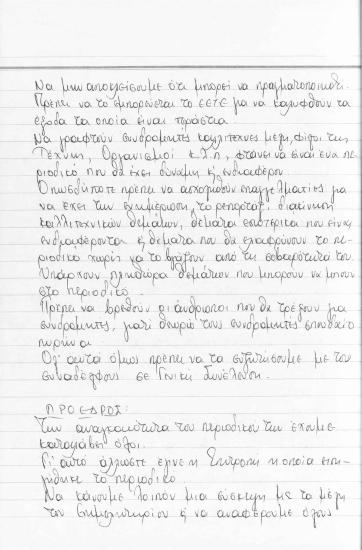 Να μην αποκλείσουμε ότι μπορεί να πραγματοποιηθεί.
Πρέπει να το εμπορεύεται το ΕΕΤΕ για να καλυφθούν τα
έξοδα τα οποία είναι τεράστια.
Να γραφτούν συνδρομητές καλλιτέχνες μέλη, φίλοι της
Τέχνης, Οργανισμοί κ.λ.π., φτάνει να είναι ένα πε
ριοδικό που θα έχει δύναμη κ ενδιαφέρον.
Οπωσδήποτε πρέπει να ασχοληθούν επαγγελματίες για
να έχει την ενημέρωση, το ρεπορτάζ, διακίνηση
καλλιτεχνικών θεμάτων, θέματα εσωτερικά που είναι
ενδιαφέροντα κ θέματα που θα ελαφρώνουν το πε
ριοδικό χωρίς να το βγάζουν από τη σοβαρότητά του.
Υπάρχουν πληθώρα θεμάτων που μπορούν να μπουν
στο περιοδικό.
Πρέπει να βρεθούν οι άνθρωποι που θα τρέξουν για
συνδρομητές, γιατί θεωρώ τους συνδρομητές σπουδαίο
πυρήνα.
Ολ' αυτά όμως πρέπει να τα συζητήσουμε με τον
συναδέλφους σε Γενική Συνέλευση.
ΠΡΟΕΔΡΟΣ:
Την αναγκαιότητα του περιοδικού την έχουμε
καταλάβει όλοι.
Γι' αυτό άλλωστε έγινε η Επιτροπή η οποία
το περιοδικό
Να κάνουμε λοιπόν μια σύσκεψη με τα μέλη
του Επιμελητηρίου ή να αναφέρουμε όλους